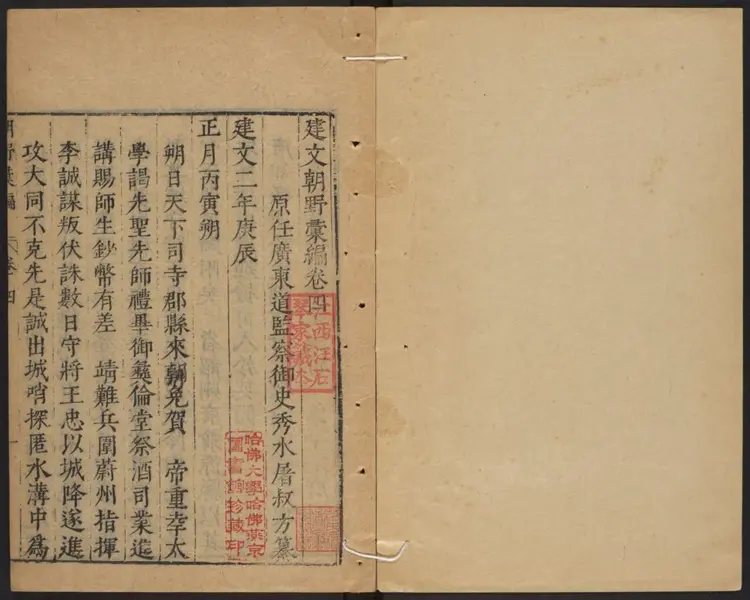 建文朝野彙編卷四
原任廣東道監察御史秀水屠叔方纂
建文二年庚辰
正月丙寅朔
朔日天下司寺郡縣來朝免賀 帝重幸太
學謁先聖先師禮畢御彝倫堂祭酒司業進
講賜師生鈔幣有差 靖難兵圍蔚州指揮
李誠謀叛伏誅數日守將王忠以城降遂進
攻大同不克先是誠出城哨探匿水溝中為
朝野彙編 卷四 一
江西汪石
琴家藏本
哈佛大學哈佛燕京
圖書館珍藏印